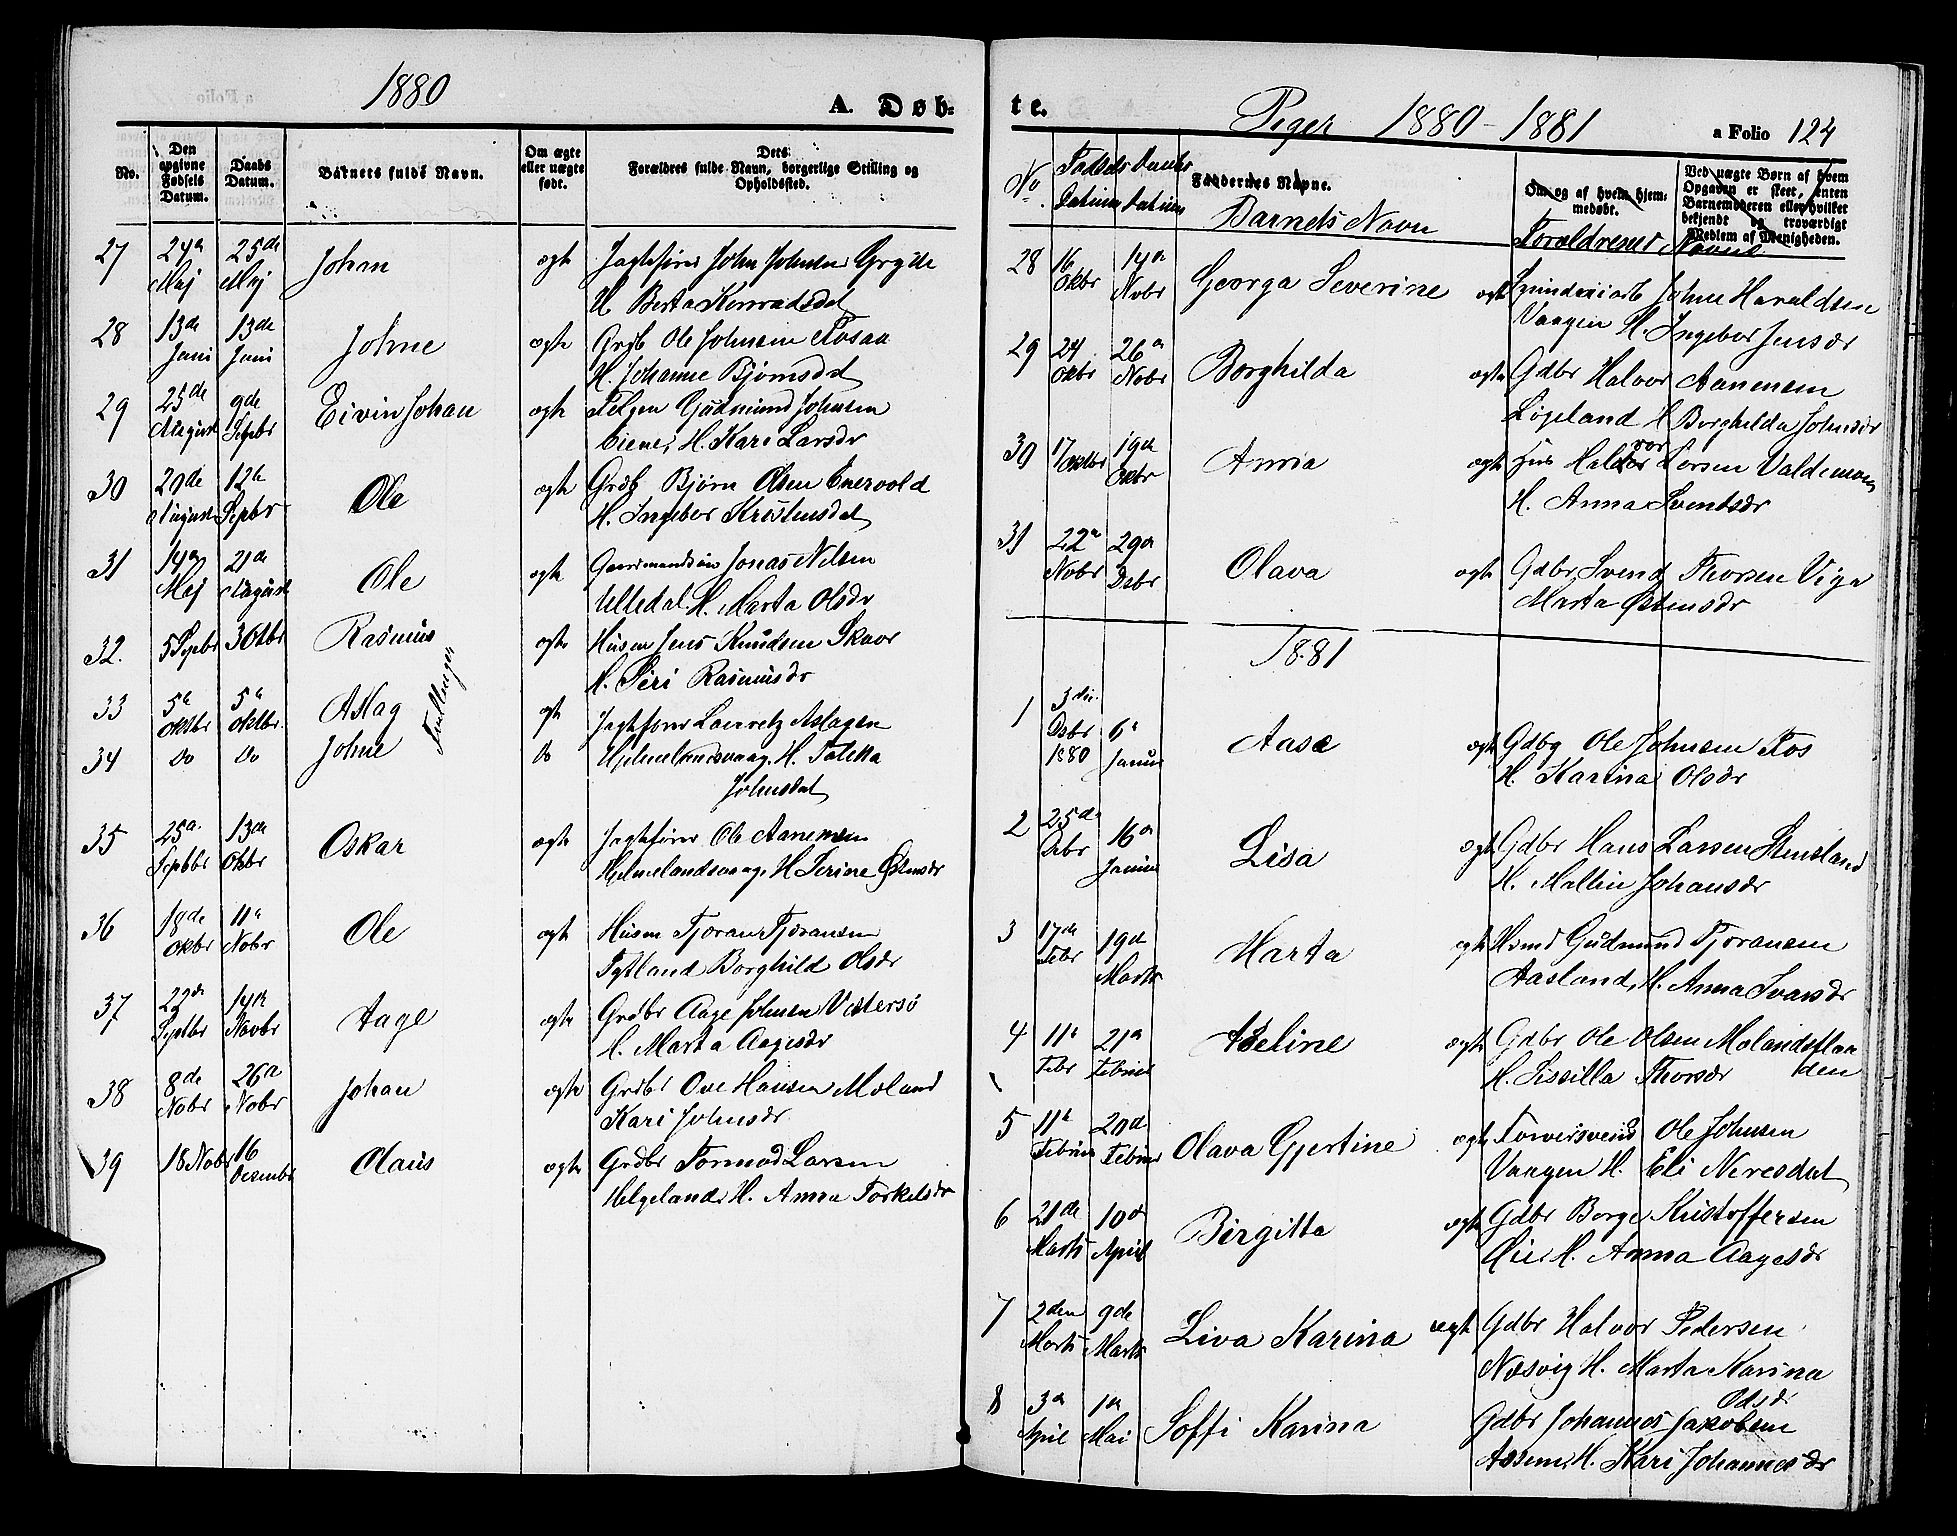 1880
A. Døb-
No.
Den opgivne Fødsels Datum.
Daabs Datum.
Barnets fulde Navn.
Om ægte eller uægte født.
Dets Forældres fulde Navn, borgerlige Stilling og Opholdssted.
27 24a Maj 25de Maj Johan ægte Jagtefører John Johnsen Gryde
H. Berta Konradsdat
28 13de Juni 13de Juni Johne ægte Grdb Ole Johnsen Fosaa
H. Johanne Bjørnsdat
29 25de August 9de Septbr Eivin Johan ægte Gudmund Johnsen
H. Kari Larsdr
30 29de August 12te Septbr Ole ægte Grdb Bjørn Olsen Enervold
H. Ingebor Kristensdat
31 14a Maj 21de August Ole ægte Gaardmandssøn Jonas Nilsen
Ulledal H. Marta Olsdr
32. 5 Septbr 3 Oktbr Rasmus ægte Husm Jens Knudsen Skaar
H. Siri Rasmusdr
33 5te Oktbr 5te Oktbr. Aslag ægte Jagtefører Lauretz Aslagsen
Tvillinger
34 do do Johne do Hjelmelandsvaag. H. Tolleka
Johnsdat
35 25a Septbr 13de Oktbr Oskar ægte Jagtefører Ole Aanensen
Hjelmelandsvaag. H Serine Østensdr
36 18de Oktbr 11te Nobr Ole ægte Husm Tjøran Tjøransen
Tytland Borghild Olsdr
37 22de Septbr 14de Novbr Aage ægte Grdbr Aage Johnsen Vestersø
H. Marta Aagesdr
38 8de Nobr 26a Nobr Johan ægte Grdbr Ove Hansen Mæland
Kari Johnsdr
39 18 Nobr 16 Desember Olaus ægte Grdbr Tormod Larsen
Helgeland H. Anna Torkelsdr
te.
Piger 1880-1881
a Folio 124
No.
Fødsels Datum
Daabs Datum
Faddernes Navne.
Barnets Navn
Om og af hvem hjemmedøbt.
Forældrenes Navne
Ved uægte Børn af hvem Opgaven er skeet, enten Barnemoderen eller hvilket bekjendt og troværdigt Medlem af Menigheden.
28 16 Oktbr 14de Nobr Georga Severine ægte Spinderiarb Johne Haraldsen
Vaagen H. Ingebor Jensdr
29 24 Oktbr 26a Nobr Borghilda ægte Gdbr Halvor Aanensen
Løgeland H Borghilda Johnsdr
30 17 Oktbr 19de Oktbr Anna ægte Hus Halvor Torsen Valdemoen
H. Anna Svendsdr
31 22a Nobr 29de Dsbr Olava ægte Gdbr Svend Thorsen Viga
Marta Østensdr
1881
1 3die Dsbr 1880 6te Januar Aase ægte Gdbr Ole Johnsen Fos
H. Karina Olsdr
2 25de Dsbr 16de Januar Lisa ægte Gdbr Hans Larsen Stensland
H. Mallin Johansdr
3 17de Febr 19de Marts Marta ægte Husmd Gudmund Tjøransen
Aasland, H. Anna Ivarsdr
4 11te Febr 21a Februar Aseline ægte Gdbr Ole Olsen Molandsflaaden
H. Sissilla Thorsdr
5 11te Februar 20de Februar Olava Gjertine ægte Farversvend Ole Johnsen
Vaagen H. Eli Neresdat
6 21de Marts 10de April Birgitta ægte Gdbr Borge Kristoffersen
Øie. H. Anna Aagesdr
7 2den Marts 9de Marts Liva Karina ægte Gdbr Halvor Pedersen
Næsvig H. Marta Karina
Olsdr
8 3a April 1a Mai Soffi Karina Gdbr Johannes Jakobsen
Assem, H. Kari Johannesdr